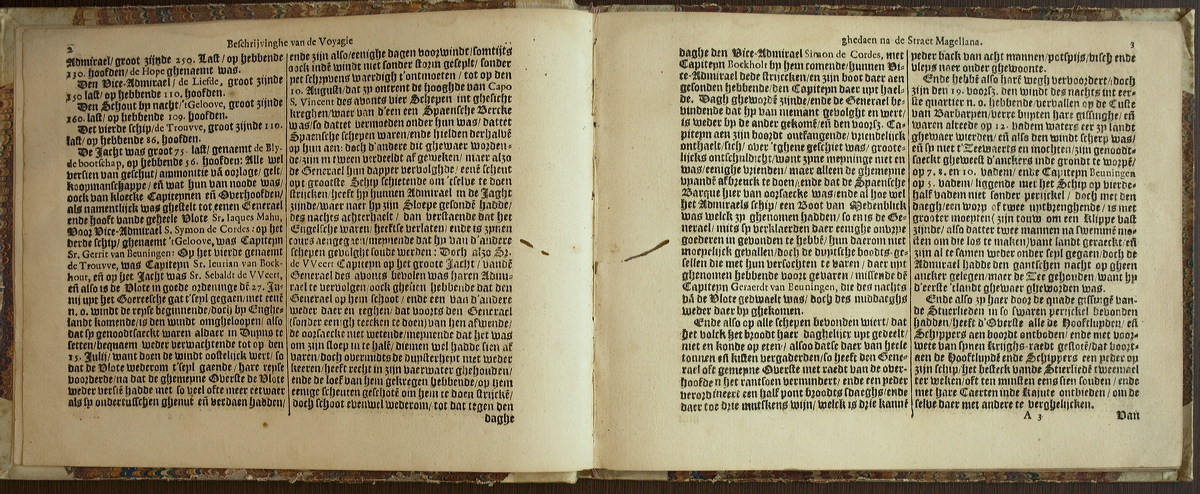 2
Beschrijvinghe van de Voyagie
Admirael/ groot zijnde 250. Last/ op hebbende
130. hoofden/ de Hope ghenaemt was.
Den Vice-Admirael/ de Liefde, groot zijnde
150 last/ op hebbende 110. hoofden.
Den Schout by nacht/ 'tGeloove, groot zijnde
160. last/ op hebbende 109. hoofden.
Het vierde schip/ de Trouvve, groot zijnde 110.
last/ op hebbende 86. hoofden.
De Jacht was groot 75. last/ genaemt de Bly-
de bootschap, op hebbende 56. hoofden: Alle wel
versien van geschut/ ammonitiā vā oorloge/ gelt/
koopmanschappe/ eñ wat hun van noode was/
oock van kloecke Capiteynen eñ Overhoofden/
als namentlick was ghestelt tot eenen Generael
ende hooft vande geheele Vlote Sr. Iaques Mahu,
Voor Vice-Admirael S. Symon de Cordes: op het
derde schip/ ghenaemt 'tGeloove, was Capiteyn
Sr. Gerrit van Beuningen: Op het vierde genaemt
de Trouvve, was Capiteyn Sr. Ieuriaen van Bock-
hout, eñ op het Jacht was Sr. Sebaldt de VVeert,
eñ also is de Vlote in goede ordeninge dē 27. Ju-
nij upt het Goereesche gat t'seyl gegaen/ met eenē
n. o. windt de reyse beginnende/ doch by Enghe-
landt komende/ is den windt omgheloopen/ also
dat sy genootsaeckt waren aldaer in Duyns te
setten/ bequaem weder verwachtende tot op den
15. Julij/ want doen de windt oostelijck wert/ so
dat de Vlote wederom t'seyl gaende/ hare reyse
voorderde/ na dat de ghemeyne Overste de Vlote
weder versiē hadde met so veel ofte meer eetwaer
als sy ondertusschen ghenut eñ verdaen hadden/
ende zijn also/ eenighe dagen voor windt/ somtijts
oock indē windt niet sonder storm geseylt/ sonder
yet schryvens waerdigh t'ontmoeten/ tot op den
10. Augusti/ dat zy ontrent de hooghde van Capo
S. Vincent des avonts vier Schepen int ghesicht
kreghen/ waer van d'een een Spaensche Bercke
was/ so datter vermoeden onder hun was/ dattet
Spaensche schepen waren/ ende hielden derhalvē
op hun aen: doch d'andere dit ghewaer worden-
de/ zijn in tween verdeelt af geweken/ maer alzo
de Generael hun dapper vervolghde/ eene schent
opt grootste Schip schietende om 'tselve te doen
strijcken/ heeft by hunnen Admirael in de Jaght
zijnde/ waer naer hy zijn Sloepe gesondē hadde/
des nachts achterhaelt/ dan verstaende dat het
Engelsche waren/ heeftse verlaten/ ende is zynen
cours aengegaen/ meynende dat hy van d'andere
schepen gevolght soude werden: Doch alzo Sr.
de VVeert Capiteyn op het groote Jacht/ vandē
Generael des avonts bevolen was haren Admi-
rael te vervolgen/ oock ghesien hebbende dat den
Generael op hem schoot/ ende een van d'andere
weder daer en teghen/ dat voorts den Generael
(sonder een gh teecken te doen) van hen afwende/
de oorsaecke niet wetende/ meynende dat het was
om zijn sloep in te halē/ dienen vol hadde sien af
varen/ doch overmidts de duysterheyt niet weder
keeren/ heeft recht in zijn vaerwater ghehouden/
ende de loef van hem gekregen hebbende/ op hem
eenige scheuten geschotē om hem te doen strijckē/
doch schoot evenwel wederom/ tot dat tegen den
daghe
ghedaen na de Straet Magellana.
3
daghe den Vice-Admirael Simon de Cordes, met
Capiteyn Bockholt by hem comende/ hunnen Vi-
ce-Admirael dede strijckcen/ en zijn boot daer aen
gesonden hebbende/ den Capiteyn daer upt hael-
de. Dagh gheworde zijnde/ ende de Generael be-
vindende dat hy van niemant gevolght en wert/
is weder by de ander gekomē/ eñ den voorsz. Ca-
piteyn aen zijn boordt ontfangende/ vriendelijck
onthaelt/ sich/ over 'tghene geschiet was/ groote-
lijcks ontschuldicht/ want zyne meyninge niet en
was/ eenighe vrienden/ maer alleen de ghemeyne
vyandē afbreuck te doen/ ende dat de Spaensche
Barque hier van oorsaecke was/ ende al hoe wel
het Admiraels schip/ een Boot van Medenblick
was welck zy ghenomen hadden/ so en is de Ge-
nerael/ mits sy verklaerden daer eenighe onvrye
goederen in gevonden te hebbē/ hun daerom niet
moeyelijck gevallen/ doch de duytsche bootsgesellen
die met hun versochten te varen/ daer upt
ghenomen hebbende voort gevaren/ missende dē
Capiteyn Geraerdt van Beuningen, die des nachts
vā de Vlote gedwaelt was/ doch des middaeghs
weder daer by ghekomen.
Ende also op alle schepen bevonden wiert/ dat
het volck het broodt haer daghelijcx upt gedeelt/
niet en konde op eten/ alsoo datse daer van heele
tonnen eñ kisten vergaderden/ so heeft den Gene-
rael oft gemeyne Overste met raedt van de over-
hoofdē n het rantsoen vermindert/ ende een yeder
verordineert een half pont broodts sdaeghs/ ende
daer toe drie mutskens wijn/ welck is drie kannē
yeder back van acht mannen/ potspijs/ visch ende
vleys naer onder ghewoonte.
Ende hebbē also harē wegh vervoordert/ doch
zijn den 19. voorsz. den windt des nachts int eer-
ste quartier n. o. hebbende/ vervallen op de Custe
van Barbaryen/ verre buyten hare gissinghe/ eñ
waren alreede op 12. vadem waters eer zy landt
ghewaer wierden/ eñ alsdan den windt scherp was/
eñ sy niet t'Zeewaerts en mochten/ zijn genoodt-
saeckt gheweest d'anckers inde grondt te worpē/
op 7. 8. en 10. vadem/ ende Capiteyn Beuningen
op 5. vadem/ liggende met het Schip op vierde-
half vadem niet sonder perijckel/ doch met den
dagh/ een worp of twee uytbrenghende/ is met
grooter moeyten (zijn touw om een Klippe vast
zijnde/ also datter twee mannen na swemmē mo-
sten om die los te maken/) vant landt geraeckt/ eñ
zijn al te samen weder onder seyl gegaen/ doch de
Admirael hadde den gantschen nacht op gheen
ancker gelegen/ maer de Zee gehouden/ want hy
d'eerste 'tlandt ghewaer gheworden was.
Ende also zy haer door de quade gissingē van-
de Stuerlieden in so swaren perijckel bevonden
hadden/ heeft d'Overste alle de Hooftluyden/ eñ
Schippers aen boordt ontboden/ ende met voor-
wete van synen krijghs-raedt geslotē/ dat voort-
aen de Hooftluydē ende Schippers een yeder op
zijn schip/ het besteck vande Stierliedē tweemael
ter weken/ oft ten minsten eens sien souden/ ende
met hare Caerten inde Kajute ontbieden/ om de
selve daer met andere te verghelijcken.
A 3
Van